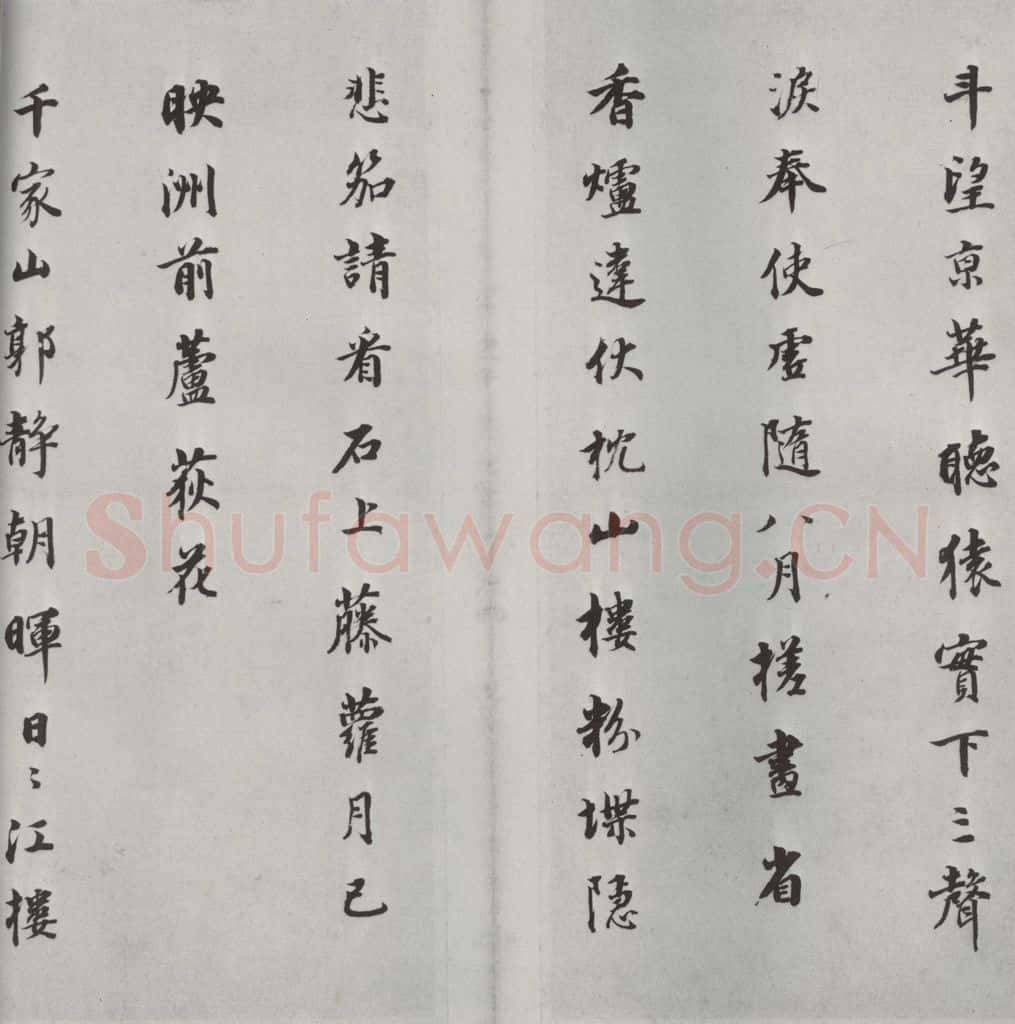 斗望京華聽猿實下三聲
淚奉使虛隨八月槎畫省
香爐違伏枕山樓粉堞隱
悲笳請看石上藤蘿月已
映洲前蘆荻花
千家山郭静朝暉日〻江樓
Shufawang.CN